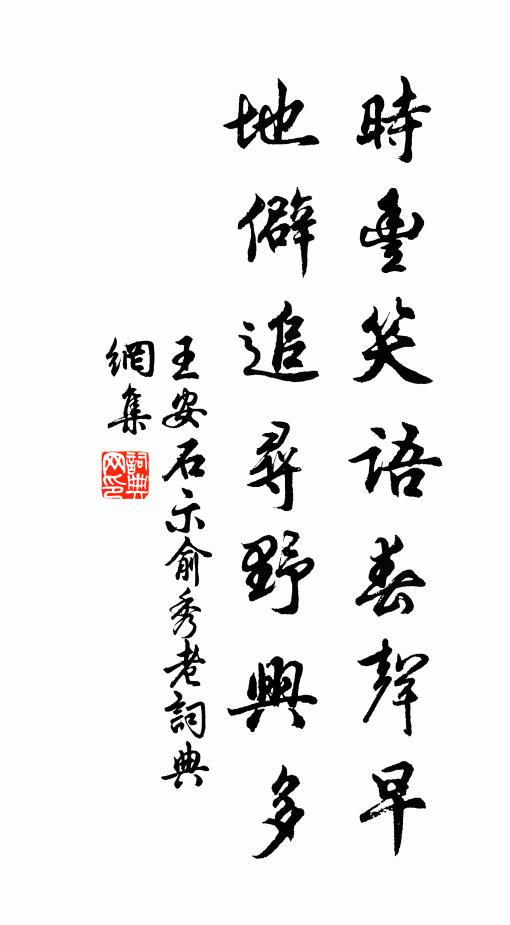 時豐笑語春聲早
地僻追尋野興多
王安石示俞秀老詞典
網集
詞典网印